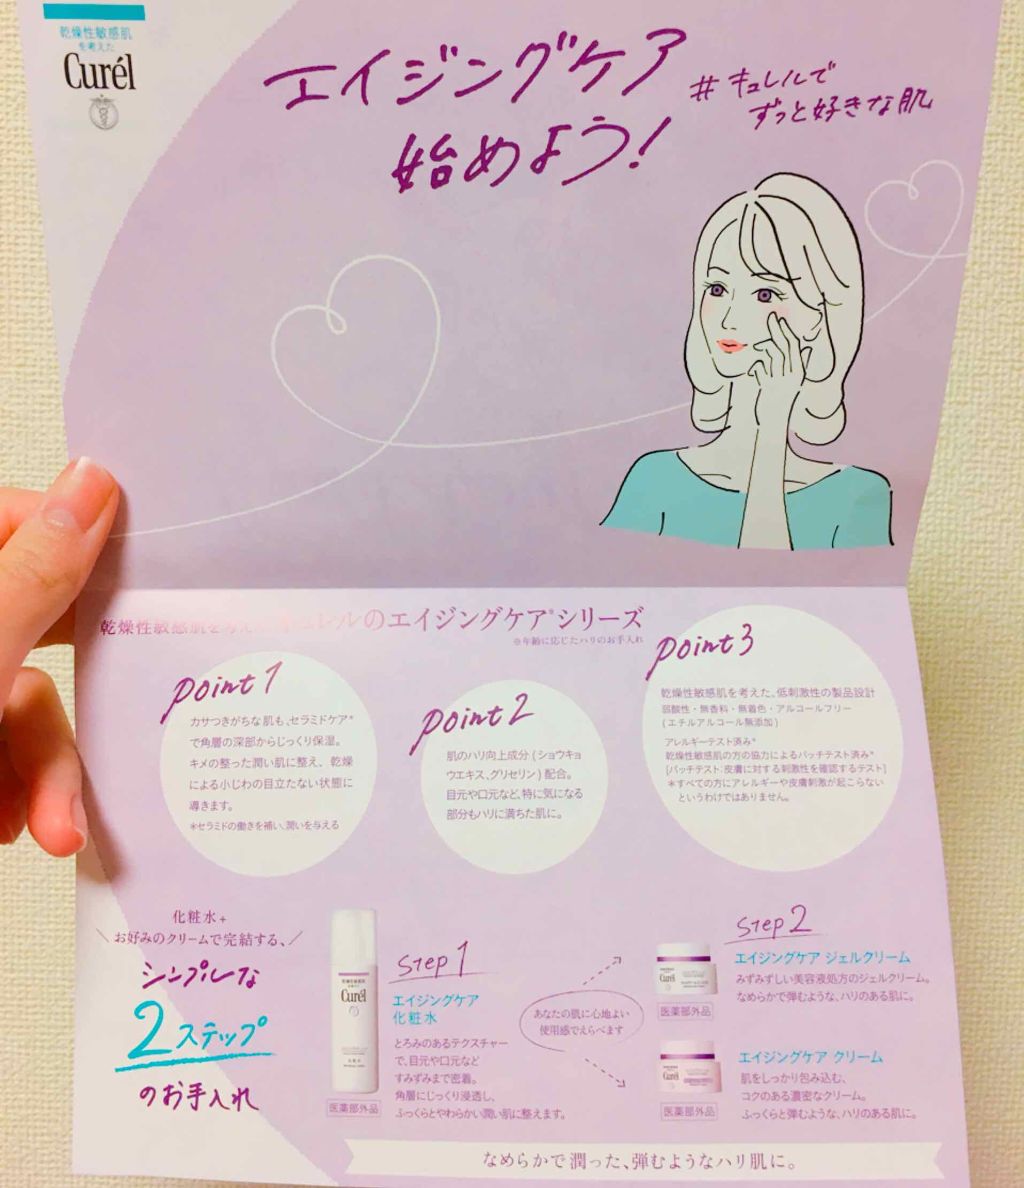 乾燥性敏感肌
を考えた
Curél
エイジングケア
始めよう!
#キュレルで
ずっと好きな肌
乾燥性敏感肌を考えた キュレルのエイジングケア*シリーズ
※年齢に応じたハリのお手入れ
point 1
カサつきがちな肌も、セラミドケア*
で角層の深部からじっくり保湿。
キメの整った潤い肌に整え、乾燥
による小じわの目立たない状態に
導きます。
*セラミドの働きを補い、潤いを与える
point 2
肌のハリ向上成分(ショウキョ
ウエキス、グリセリン)配合。
目元や口元など、特に気になる
部分もハリに満ちた肌に。
point 3
乾燥性敏感肌を考えた、低刺激性の製品設計
弱酸性・無香料・無着色・アルコールフリー
(エチルアルコール無添加)
アレルギーテスト済み*
乾燥性敏感肌の方の協力によるパッチテスト済み*
[パッチテスト:皮膚に対する刺激性を確認するテスト]
*すべての方にアレルギーや皮膚刺激が起こらない
というわけではありません。
化粧水+
お好みのクリームで完結する、
シンプルな
2ステップ
のお手入れ
Curél
医薬部外品
Step 1
エイジングケア
化粧水
とろみのあるテクスチャー
で、目元や口元など
すみずみまで密着。
角層にじっくり浸透し、
ふっくらとやわらかい潤い肌に整えます。
あなたの肌に心地よい
使用感でえらべます
Step 2
Curél
医薬部外品
エイジングケア ジェルクリーム
みずみずしい美容液処方のジェルクリーム。
なめらかで弾むような、ハリのある肌に。
Curél
医薬部外品
エイジングケア クリーム
肌をしっかり包み込む、
コクのある濃密なクリーム。
ふっくらと弾むような、ハリのある肌に。
なめらかで潤った、弾むようなハリ肌に。